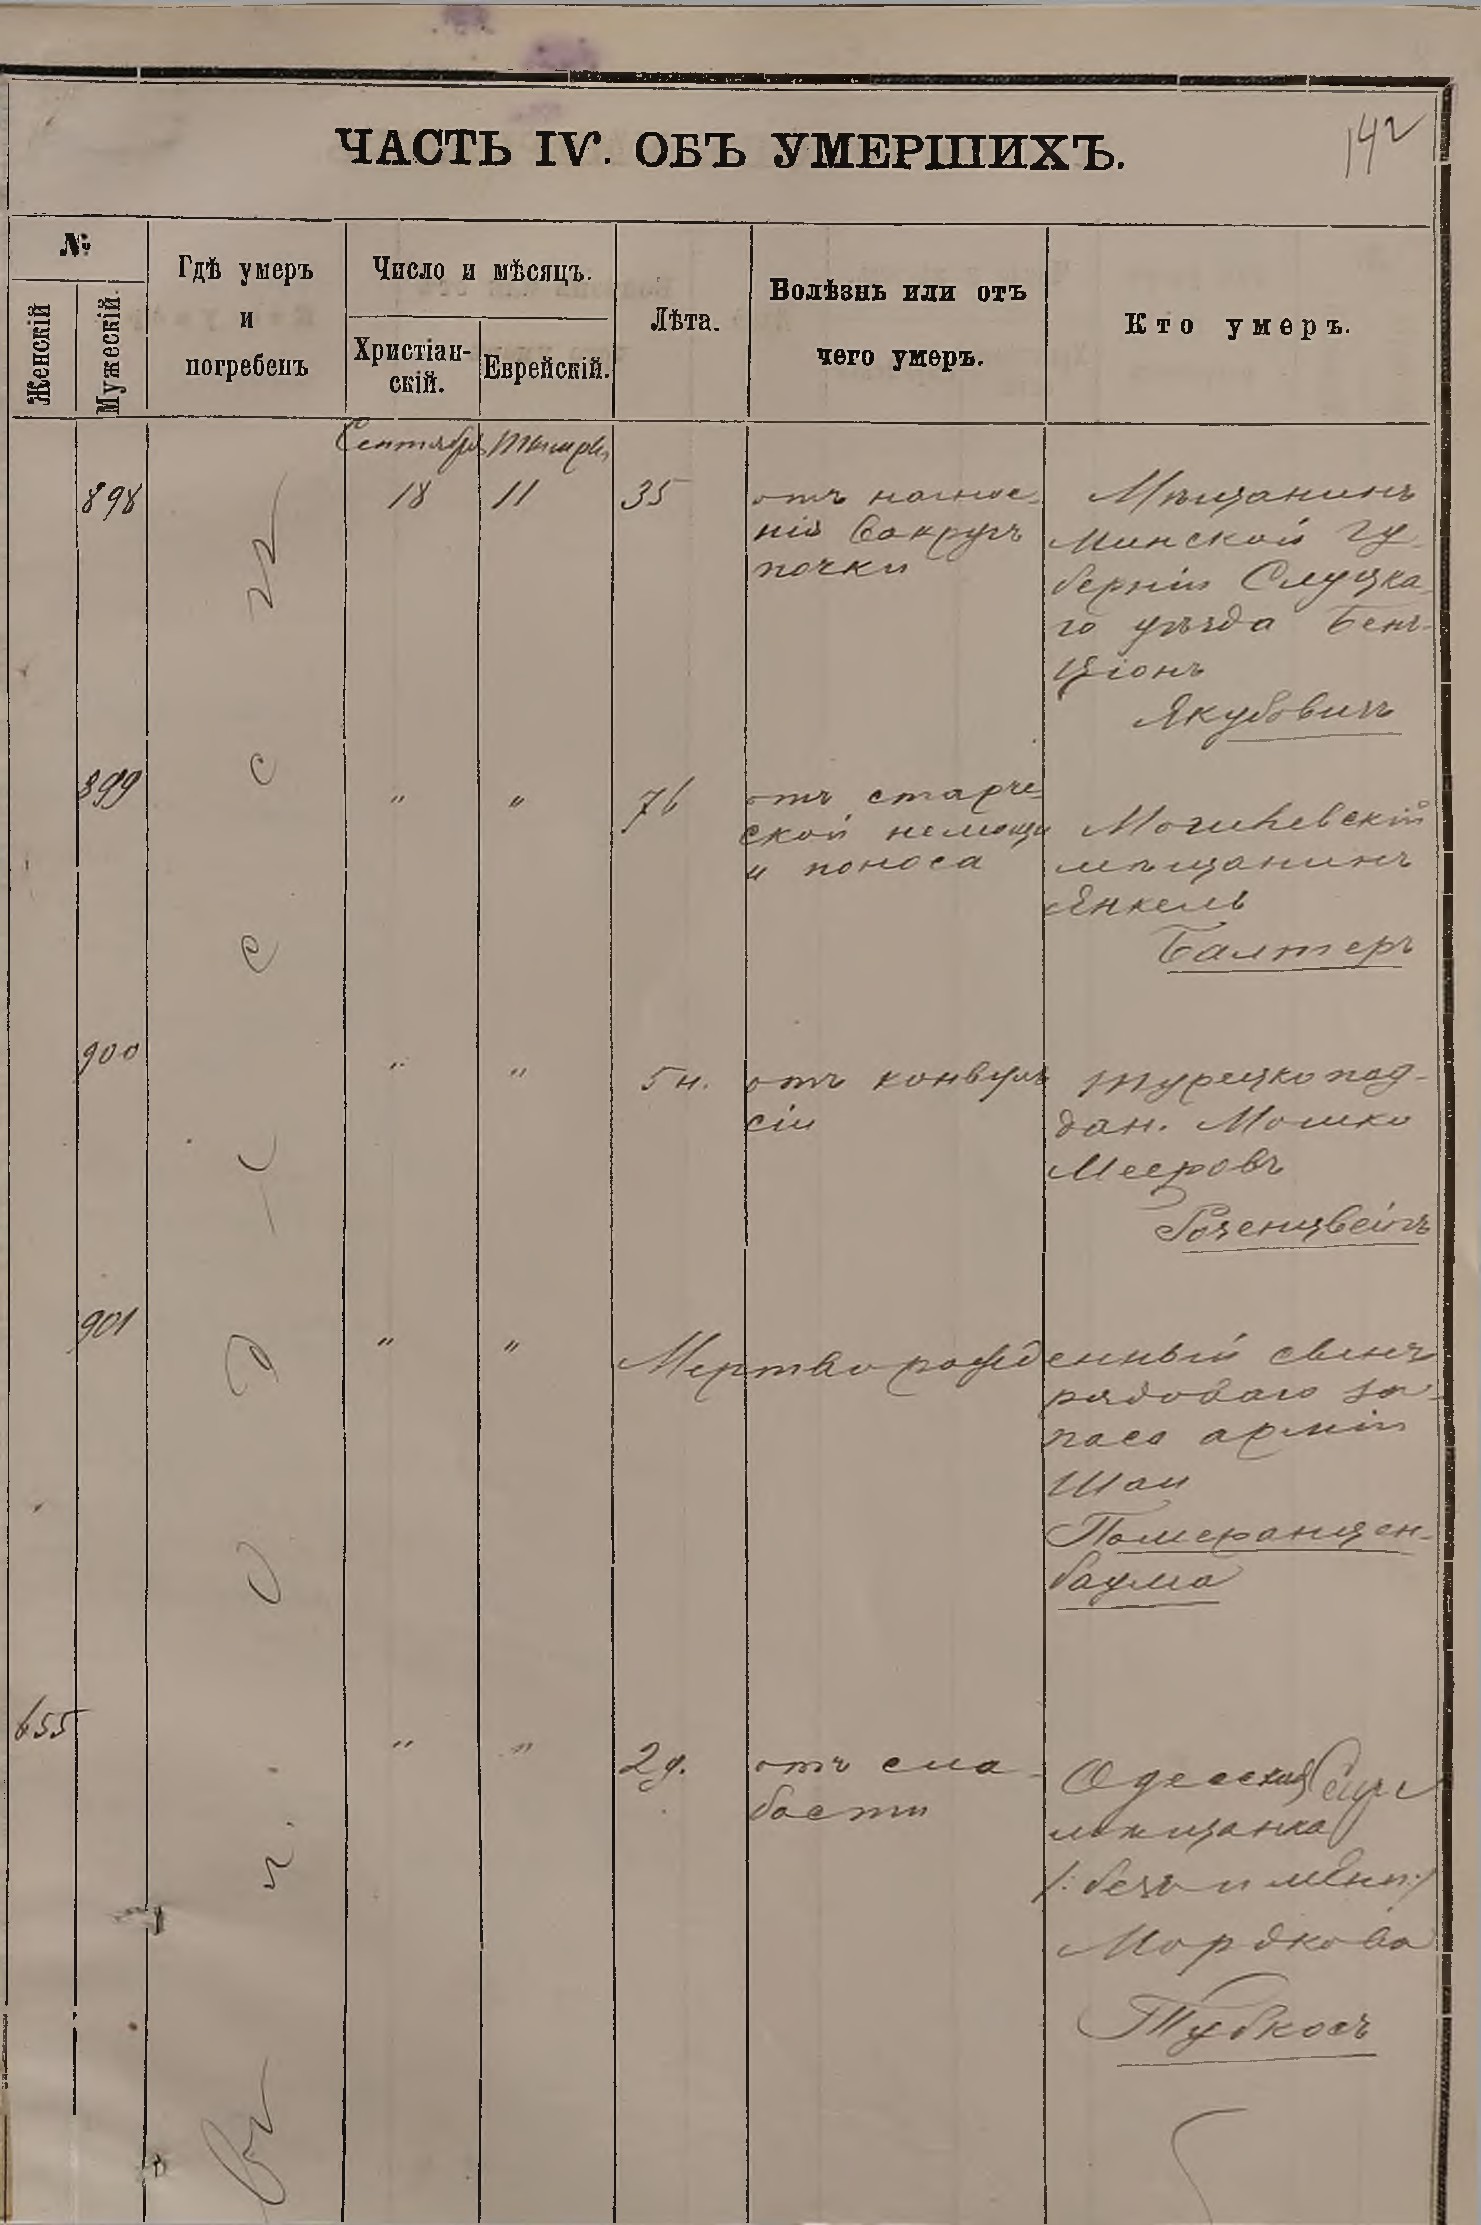 ЧАСТЬ IV. ОБЪ УМЕРШИХЪ.
142
№
Женскій
Мужескій.
Гдѣ умеръ
и
погребенъ
Число и мѣсяцъ.
Христіан-
скій.
Еврейскій.
Лѣта.
Болѣзнь или отъ
чего умеръ.
Кто умеръ.
Сентября Тишри
въ г. Одессѣ
898 18 11 35
отъ нагное-
нія вокругъ
почки
Мѣщанинъ
Минской гу-
берніи Слуцка-
го уѣзда Бенъ-
Ціонъ
Якубовичъ
899 " " 76
отъ старче-
ской немощи
и поноса
Могилевскій
мѣщанинъ
Янкель
Балтеръ
900 " " 5 н.
отъ конвуль-
сіи
Турецко под-
дан. Мошко
Мееровъ
Розенцвейгъ
901 " " Мертворожденный сынъ
рядоваго за-
паса арміи
Шаи
Померанцен-
баума
655 " " 2 д.
отъ сла-
бости
Одесская
мѣщанка
/: безъ имени :/
Мордкова